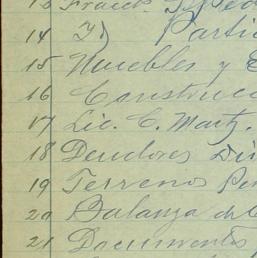 13 Franco.
14 Partic
15 Muebles y E
16 Construcc
17 Lic. C. Martz.
18 Deudores Di
19 Terrenos
20 Balanza de C
21 Documentos